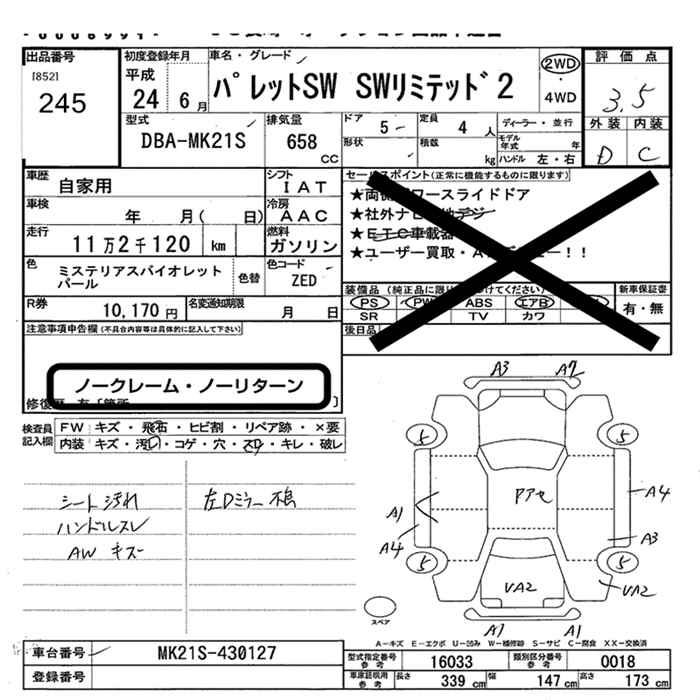 出品番号
[852]
245
初度登録年月
平成
24 6月
車名・グレード
パレットSW SWリミテッド2
2WD
・
4WD
評価点
3.5
外装 内装
D C
型式
DBA-MK21S
排気量
658
CC
ドア
5
定員
4 人
形状
積載
kg
ディーラー・並行
モデル年式 年
ハンドル 左・右
車歴
自家用
シフト
IAT
車検
年 月( 日)
冷房
AAC
走行
11万2千120 km
燃料
ガソリン
色
ミステリアスバイオレット
パール
色替
色コード
ZED
R券
10,170円
名変通知期限
月 日
セールスポイント(正常に機能するものに限ります)
★両側
ワースライドドア
★社外ナビ
地デジ
★ETC車載器
★ユーザー買取・A
ー!!
装備品(純正品に限り
けてください)
PS PW ABS エアB
SR TV カワ
新車保証書
有・無
後日品
注意事項申告欄(不具合内容等は具体的に記入して下さい)
ノークレーム・ノーリターン
検査員
記入欄
FW キズ・飛石・ヒビ割・リペア跡・×要
内装 キズ・汚れ・コゲ・穴・スレ・キレ・破レ
シート汚れ
ハンドルスレ
AW キズ
左Dミラー不鳥
A3 A7
5 5
A1
A4
Pアセ
A4
A3
5 5
VA2
VA2
A7 A1
スペア
A-キズ E-エクボ U-凹み W-補修跡 S-サビ C-腐食 XX-交換済
車台番号
MK21S-430127
登録番号
型式指定番号
参考
16033
類別区分番号
参考
0018
車庫証明用
参考
長さ 339 cm
幅 147 cm
高さ 173 cm